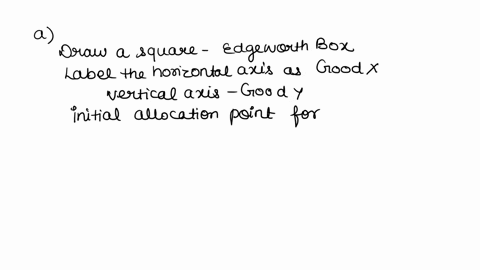 a)
Draw a square - Edgeworth Box
Label the horizontal axis as Good X
vertical axis - Good Y
initial allocation point for